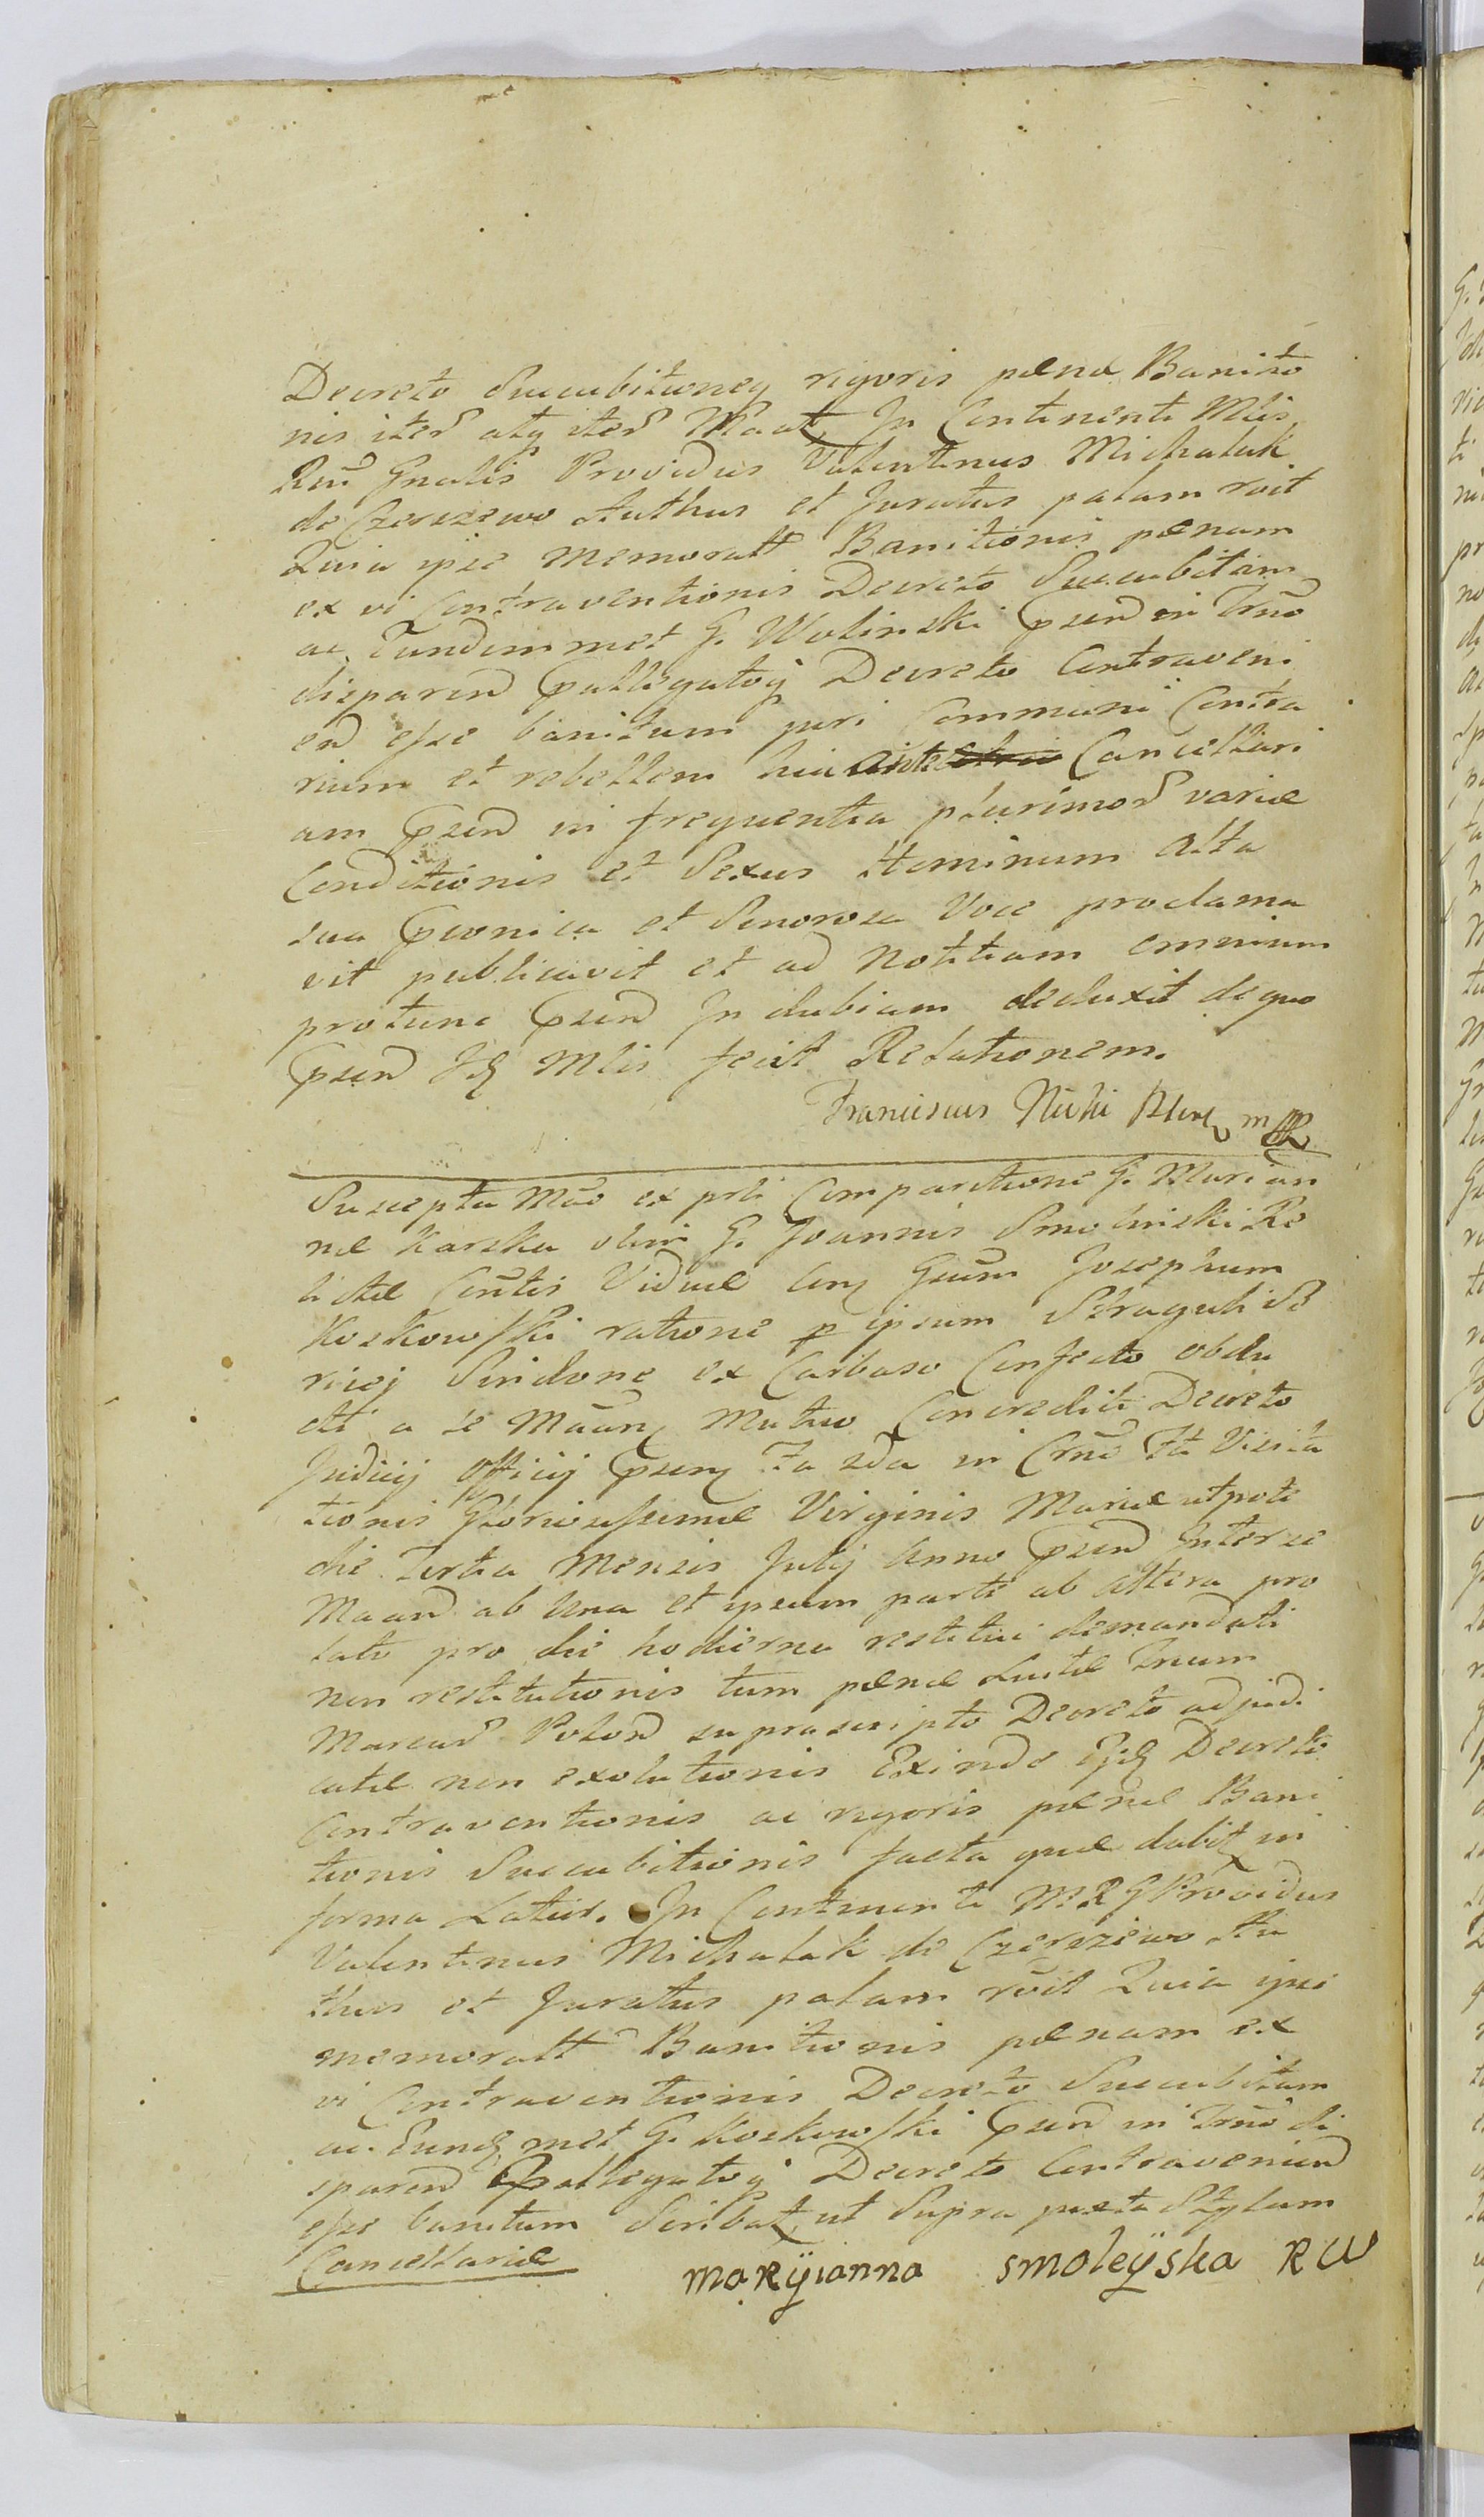 Decreto Succubitioneq rigoris pœnæ Banitio
nis iterũ atq iterũ Maãt In Continenti Mlis
Rni Gnalis Providus Valentinus Michalak
de Czerszewo Authus et Juratus palam roit
Quia ipse memoratt Banitionis pœnam
ex vi Contraventionis Decreto Succubitam
ac Eundemmet G. Wolinski Psen in Trno
disparen Pallegatoq Decreto Contraveni
en esse banitum juri Communi Contra
rium et rebellem hic ante Cancellari
am Psen in frequentia plurimor variæ
Conditionis et Sexus Hominum alta
sua Pconica et Sonorosa Voce proclama
vit publicavit et ad Notitiam omnium
protunc Psen Indubiam deduxit de quo
Psen Id Mlis fecit Relationem.
Franciscus m
Suscepta Mão ex prti Comparitione G. Marian
næ Karska olim G. Joannis Smolinski Re
lictæ Cõrtis Viduæ Con Gsum Josephum
Koskowski ratione p ipsum Straguli Se
ricej Sindone ex Carbaso Confecto obdu
cti a se Maan Mutuo Concrediti Decreto
Judicij Officij Psen Fa 2da in Crno Fti Visita
tionis Gloriosissimæ Virginis Mariæ utpote
die Tertia Mensis Julij Anno Psen Inter se
Maan ab Una et ipsum parte ab altera pro
lato pro die hodierna restitui demandati
non restitutionis tum pœnæ Luitæ Trium
Marcar Polon suprascripto Decreto adjudi
catæ non exolutionis Exinde Ejd Decreti
Contraventionis ac rigoris pœnæ Bani
tionis Succubitionis facta quæ dabit in
forma Latior. In Continenti M. R G Providus
Valentinus Michalak de Czerszewo Au
thus et Juratus palam roit Quia ipse
memoratt Banitionis pœnam ex
vi Contraventionis Decreto Succubitam
ac Eund met G. Koskowski Psen in Trno di
sparen Pallegatoq Decreto Contravenien
esse banitum Scribat ut Supra juxta Stylum
Cancellariæ
maryianna smoleyska RW